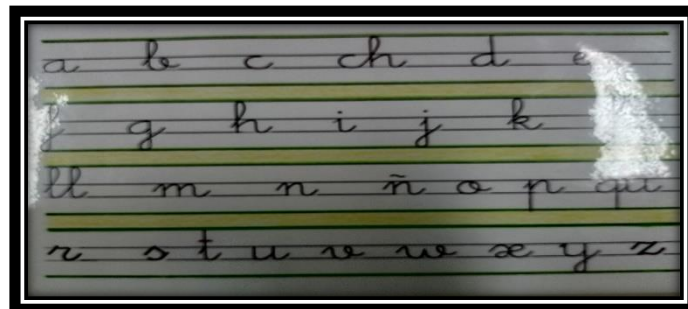 a b c ch d e
f g h i j k
ll m n ñ o p qu
r s t u v w x y z